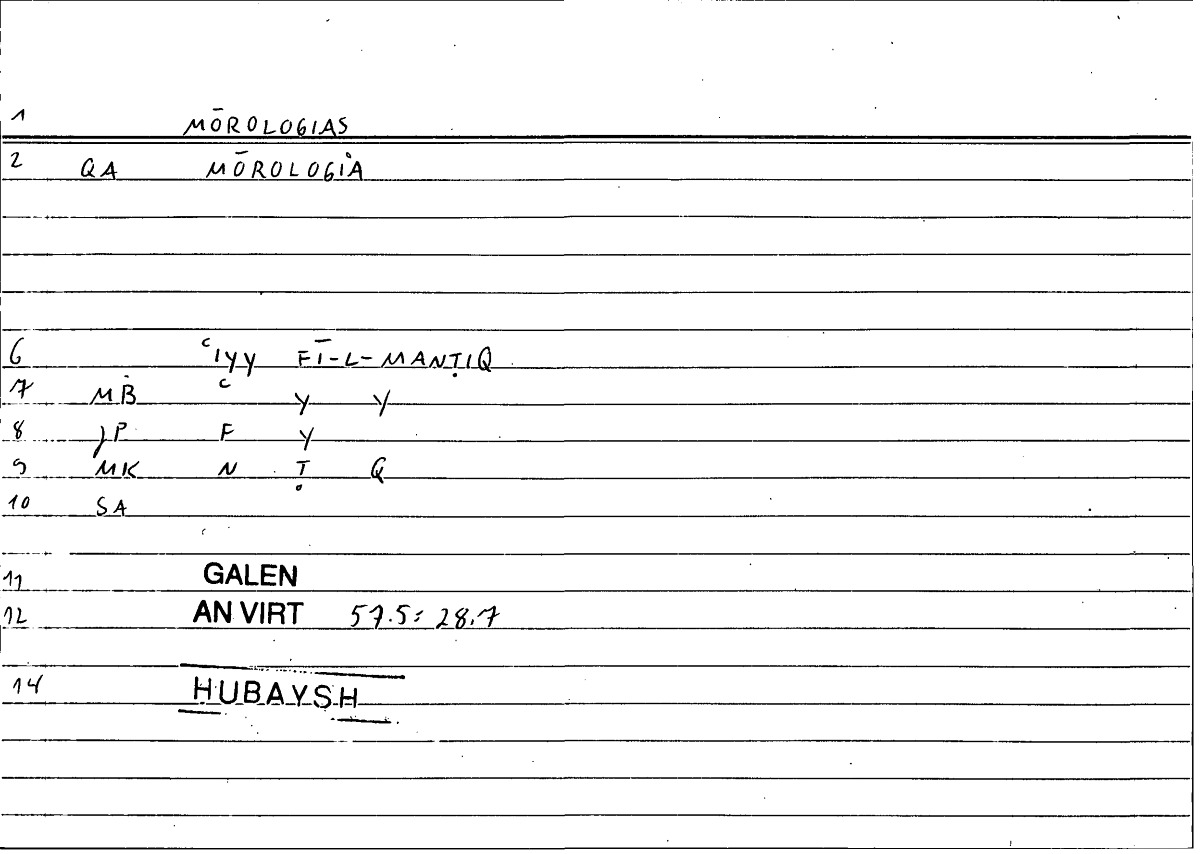 1 MŌROLOGIAS
2 QA MŌROLOGIA
6 ʿIYY FĪ-L-MANṬIQ
7 MB ʿ Y Y
8 JP F Y
9 MK N Ṭ Q
10 SA
11 GALEN
12 AN VIRT 57.5: 28.7
14 HUBAYSH